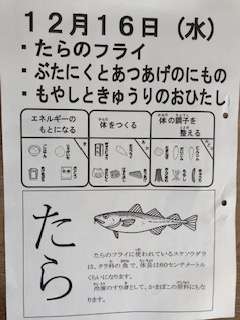 12月16日(水)
・たらのフライ
・ぶたにくとあつあげのにもの
・もやしときゅうりのおひたし
エネルギーの
もとになる
体をつくる
体の調子を
整える
たら
たらのフライに使われているスケソウダラ
は、タラ科の魚で、体長は60センチメートル
くらいになります。
冷凍のすり身として、かまぼこの原料にもな
ります。